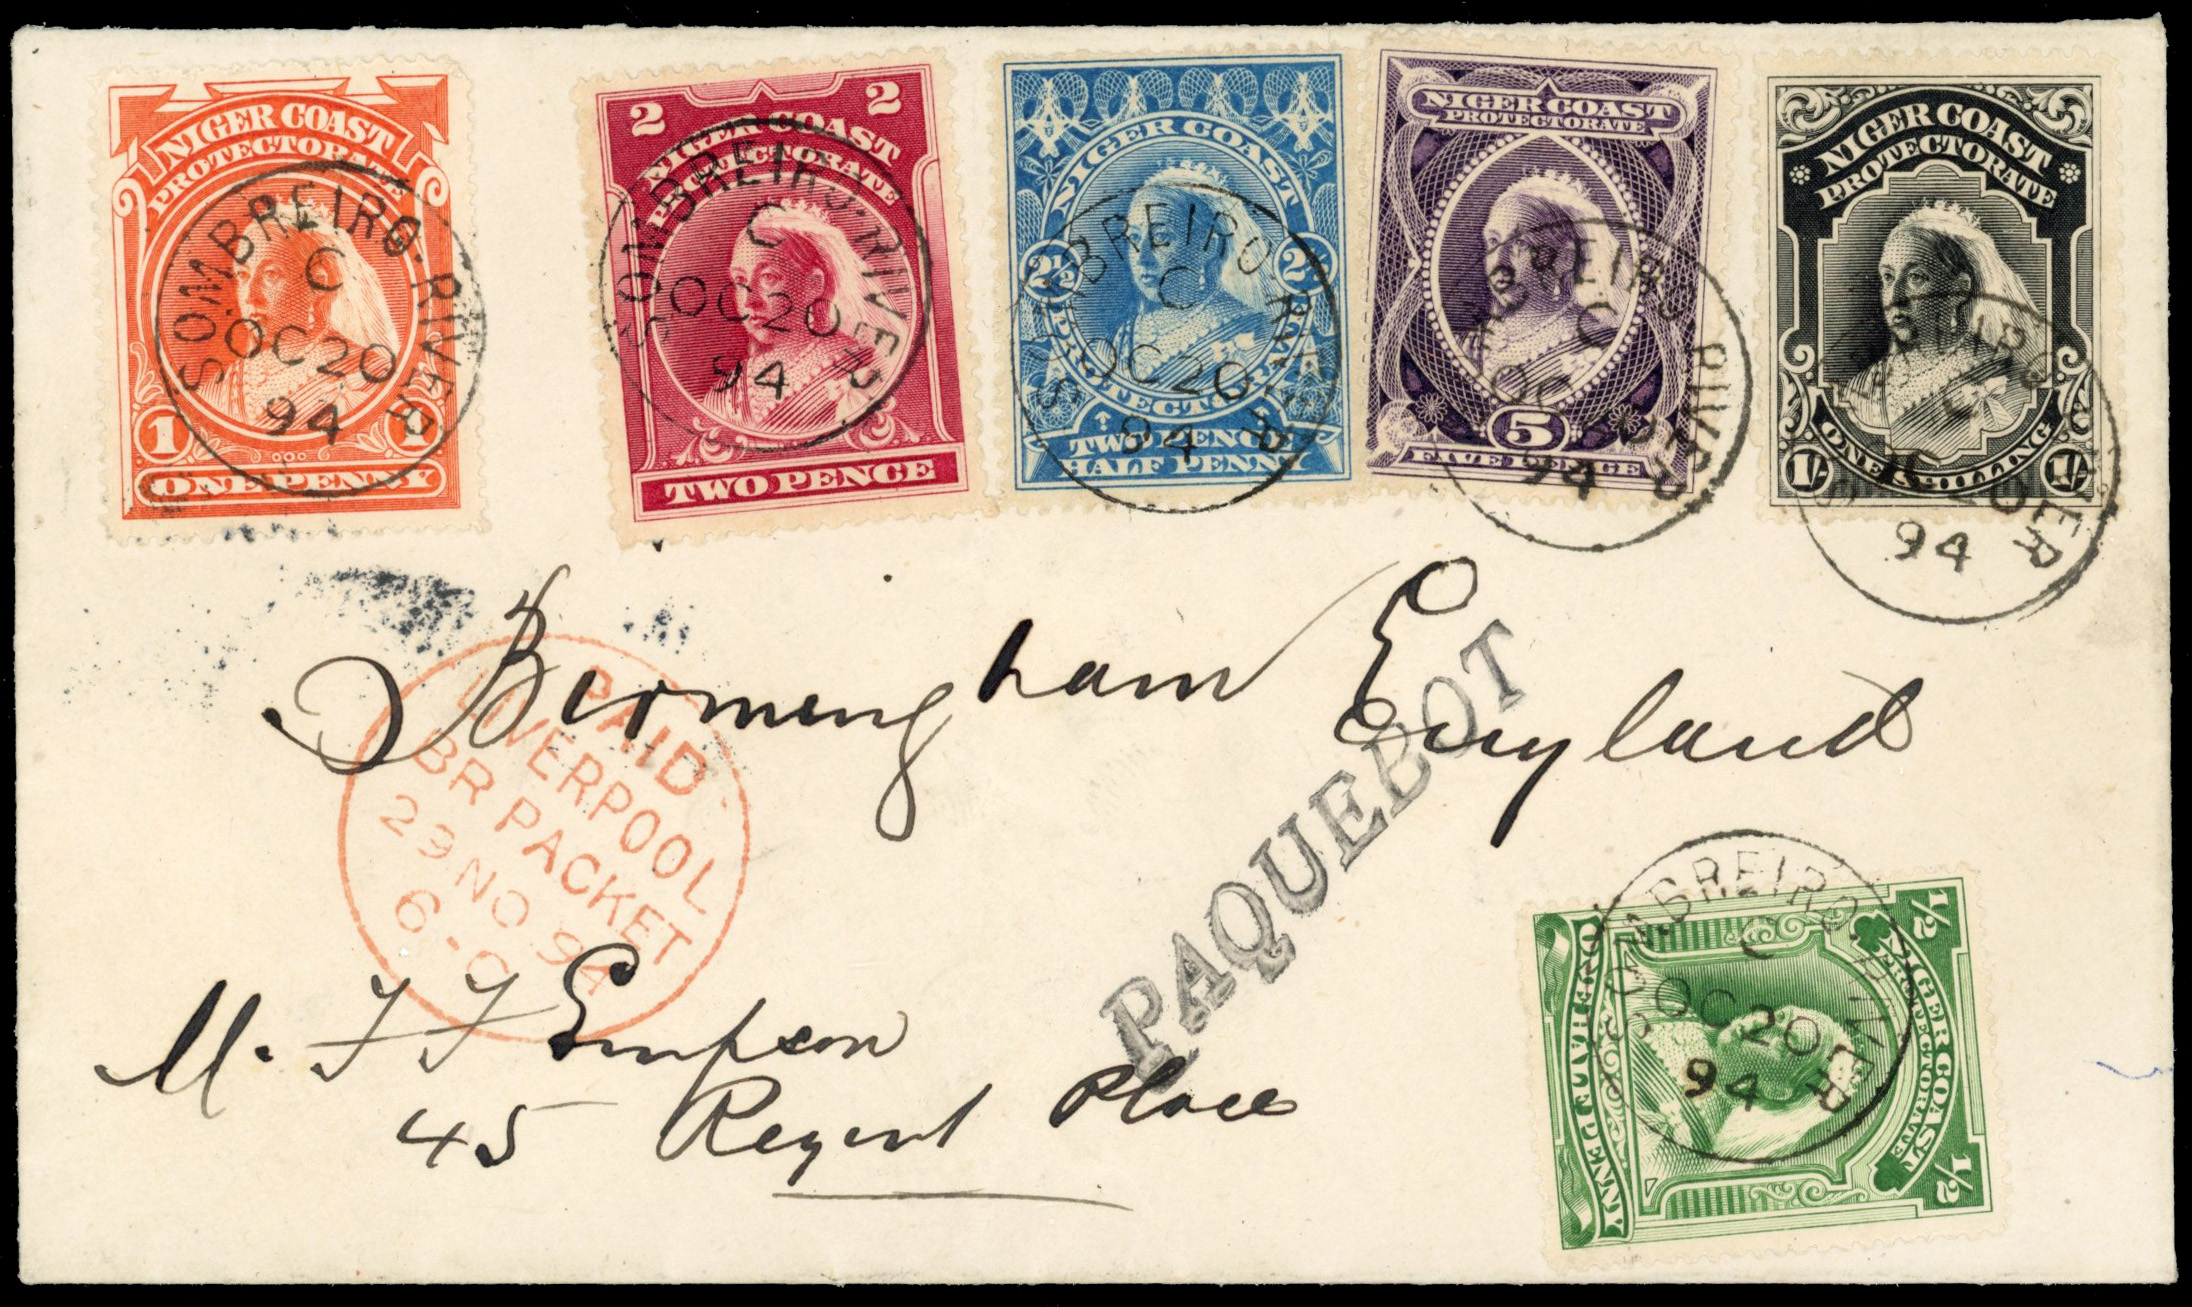 NIGER COAST
PROTECTORATE
1 1
ONE PENNY
SOMBREIRO·RIVER
C
OC 20
94
2 2
NIGER COAST
PROTECTORATE
TWO PENCE
SOMBREIRO·RIVER
C
OC 20
94
NIGER COAST
2½ 2½
PROTECTORATE
TWO PENCE
HALF PENNY
SOMBREIRO·RIVER
C
OC 20
94
NIGER COAST
PROTECTORATE
5
FIVE PENCE
SOMBREIRO·RIVER
C
OC 20
94
NIGER COAST
PROTECTORATE
1/- 1/-
ONE SHILLING
SOMBREIRO·RIVER
C
OC 20
94
Birmingham England
PAQUEBOT
PAID
LIVERPOOL
BR PACKET
29 NO 94
6-0
M. F F Empson
45 Regent Place
½ ½
NIGER COAST
PROTECTORATE
SOMBREIRO·RIVER
C
OC 20
94